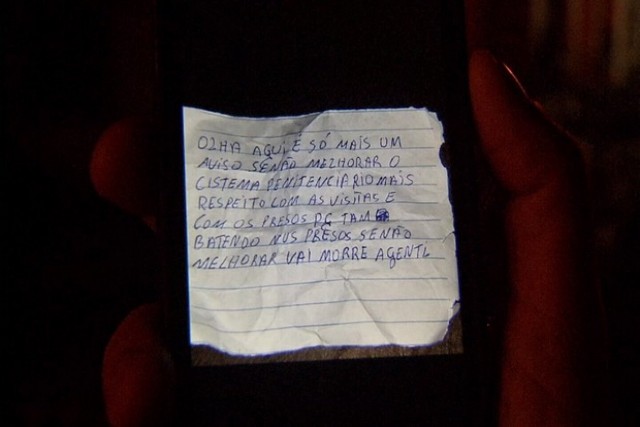 OLHA AQUI É SÓ MAIS UM
AVISO SENÃO MELHORAR O
CISTEMA PENITENCIÁRIO MAIS
RESPEITO COM AS VISITAS E
COM OS PRESOS PG TAM
BATENDO NUS PRESOS SENÃO
MELHORAR VAI MORRE AGENTE